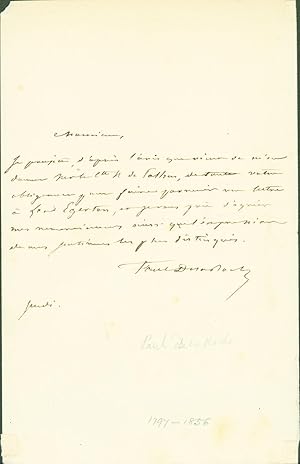 Monsieur,
Je profite, d'après l'avis que vient de m'en
donner de votre
obligeance pour faire parvenir ma lettre
à Lord Egerton, et je vous prie d'agréer
mes remerciements ainsi que l'expression
de mes sentiments les plus distingués.
Paul Delaroche
Jeudi.
Paul Delaroche
1797-1856